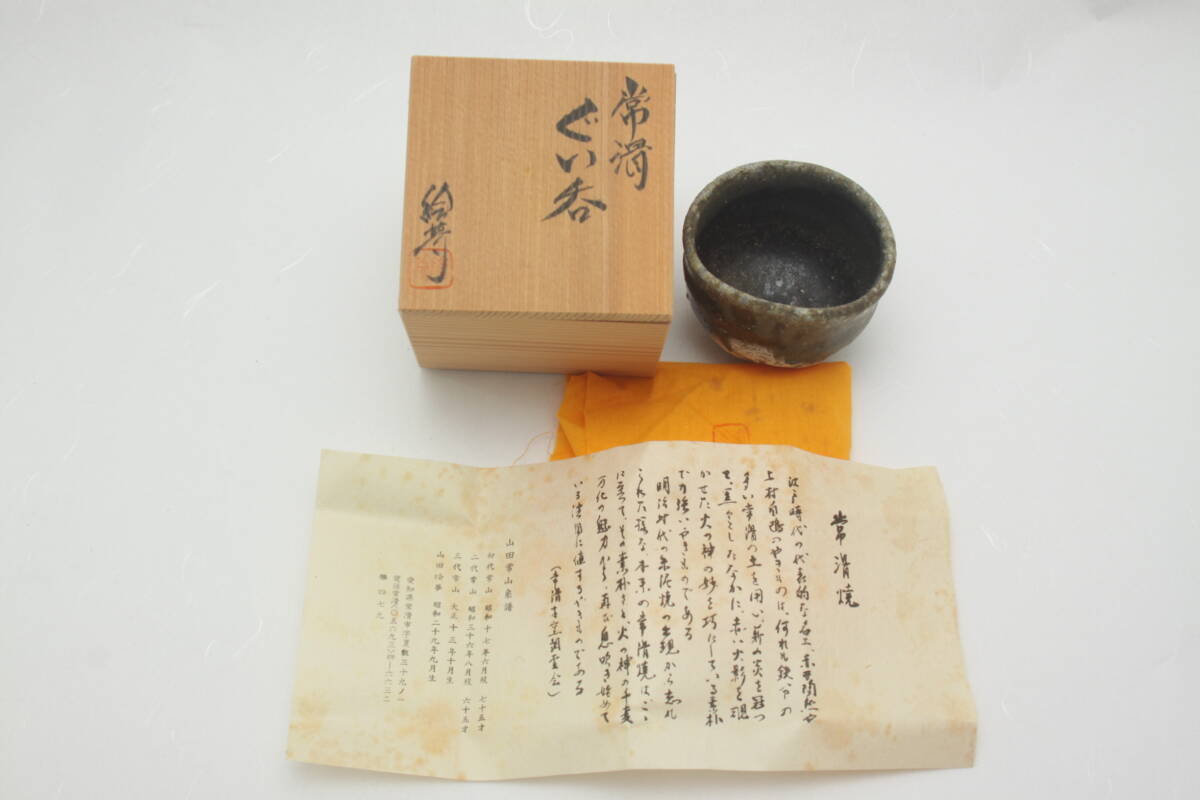 常滑
ぐい呑
絵夢
常滑焼
江戸時代の代表的な名工、赤井陶然や
上村白鴎のやきものは、何れも鉄分の
多い常滑の土を用い、薪の炎を冠っ
て、黒々としたなかに、赤い火影を現
かせた火の神の妙を巧にしている素朴
で力強いやきものである
明治時代の朱泥焼の出現から忘れ
られた様な、本来の常滑焼は、ここ
に至って、その素朴さと、火の神の千変
万化の魅力から、再び息吹き始めて
いる注目に値するやきものである
山田常山系譜
初代常山 昭和十七年六月歿 七十五才
二代常山 昭和三十六年八月歿 六十五才
三代常山 大正十三年十月生
山田絵夢 昭和二十九年九月生
愛知県常滑市字